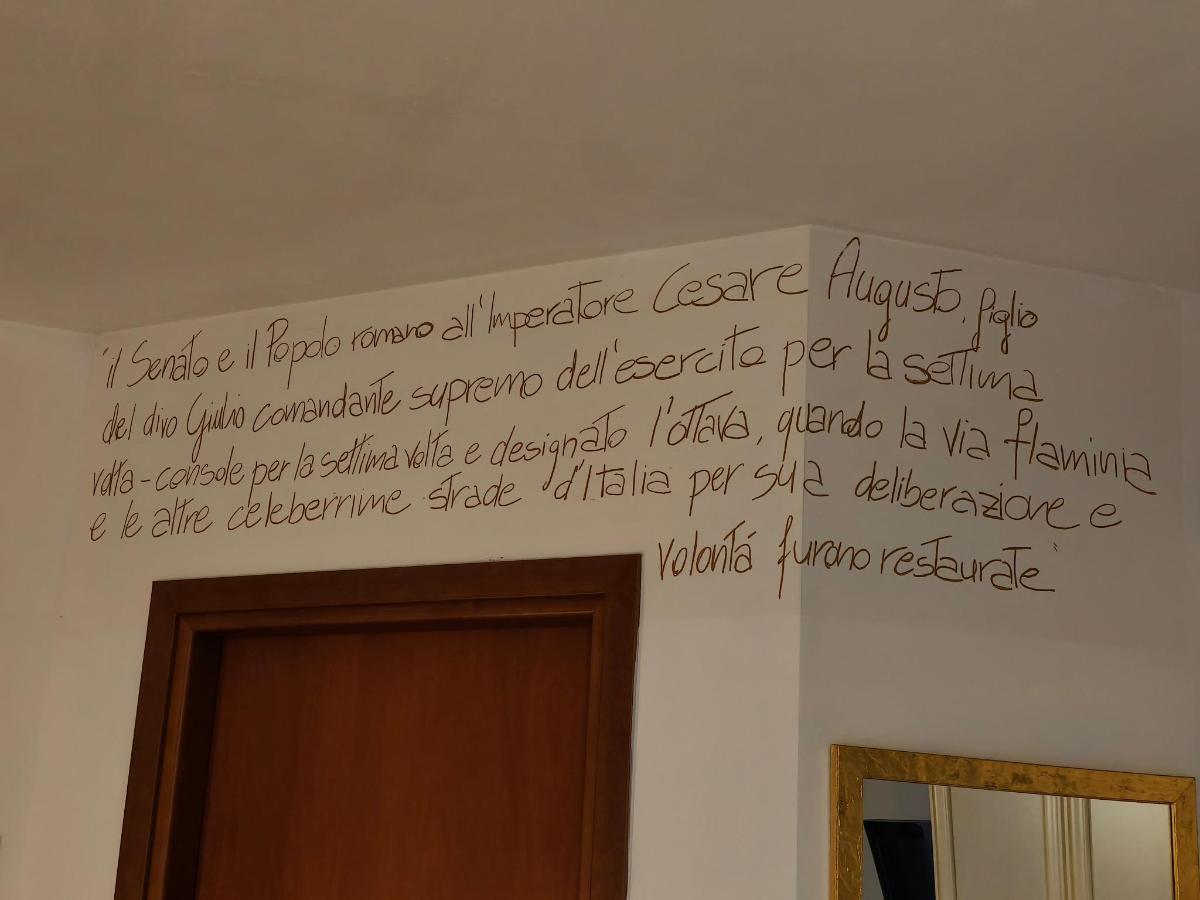 "il Senato e il Popolo romano all'Imperatore Cesare Augusto, figlio
del divo Giulio comandante supremo dell'esercito per la settima
volta - console per la settima volta e designato l'ottava, quando la via flaminia
e le altre celeberrime strade d'Italia per sua deliberazione e
volontá furono restaurate"